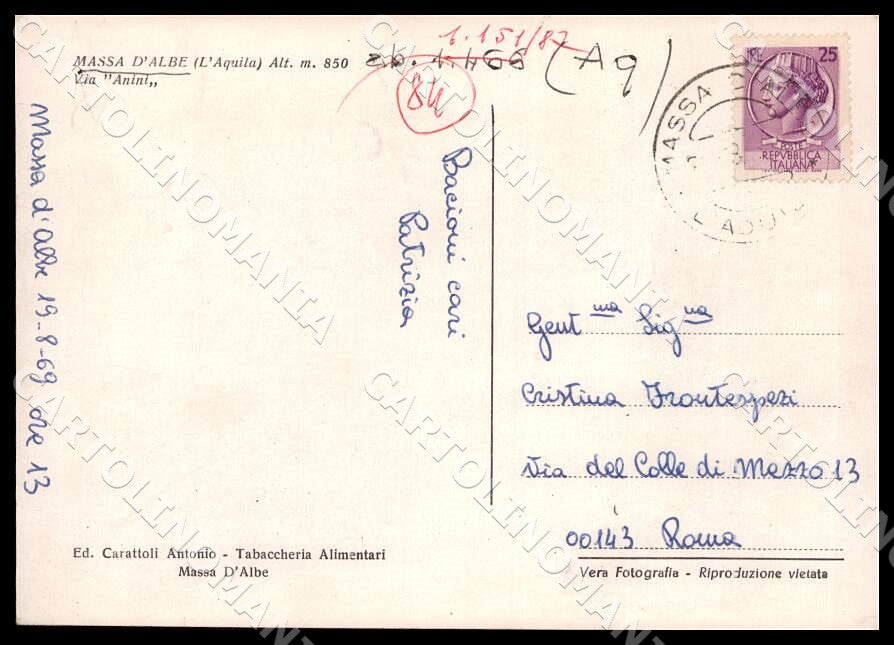 MASSA D'ALBE (L'Aquila) Alt. m. 850
Via "Anini„
1.151/87
(Aq)
84
Massa d'Albe 19-8-69 ore 13
Bacioni cari
Patrizia
25
POSTE
REPVBBLICA
ITALIANA
MASSA D'
L'AQUILA
Gent ma Sig na
Cristina Frontespezi
Via del Colle di Mezzo 13
00143 Roma
Ed. Carattoli Antonio - Tabaccheria Alimentari
Massa D'Albe
Vera Fotografia - Riproduzione vietata
CARTOLINOMANIA